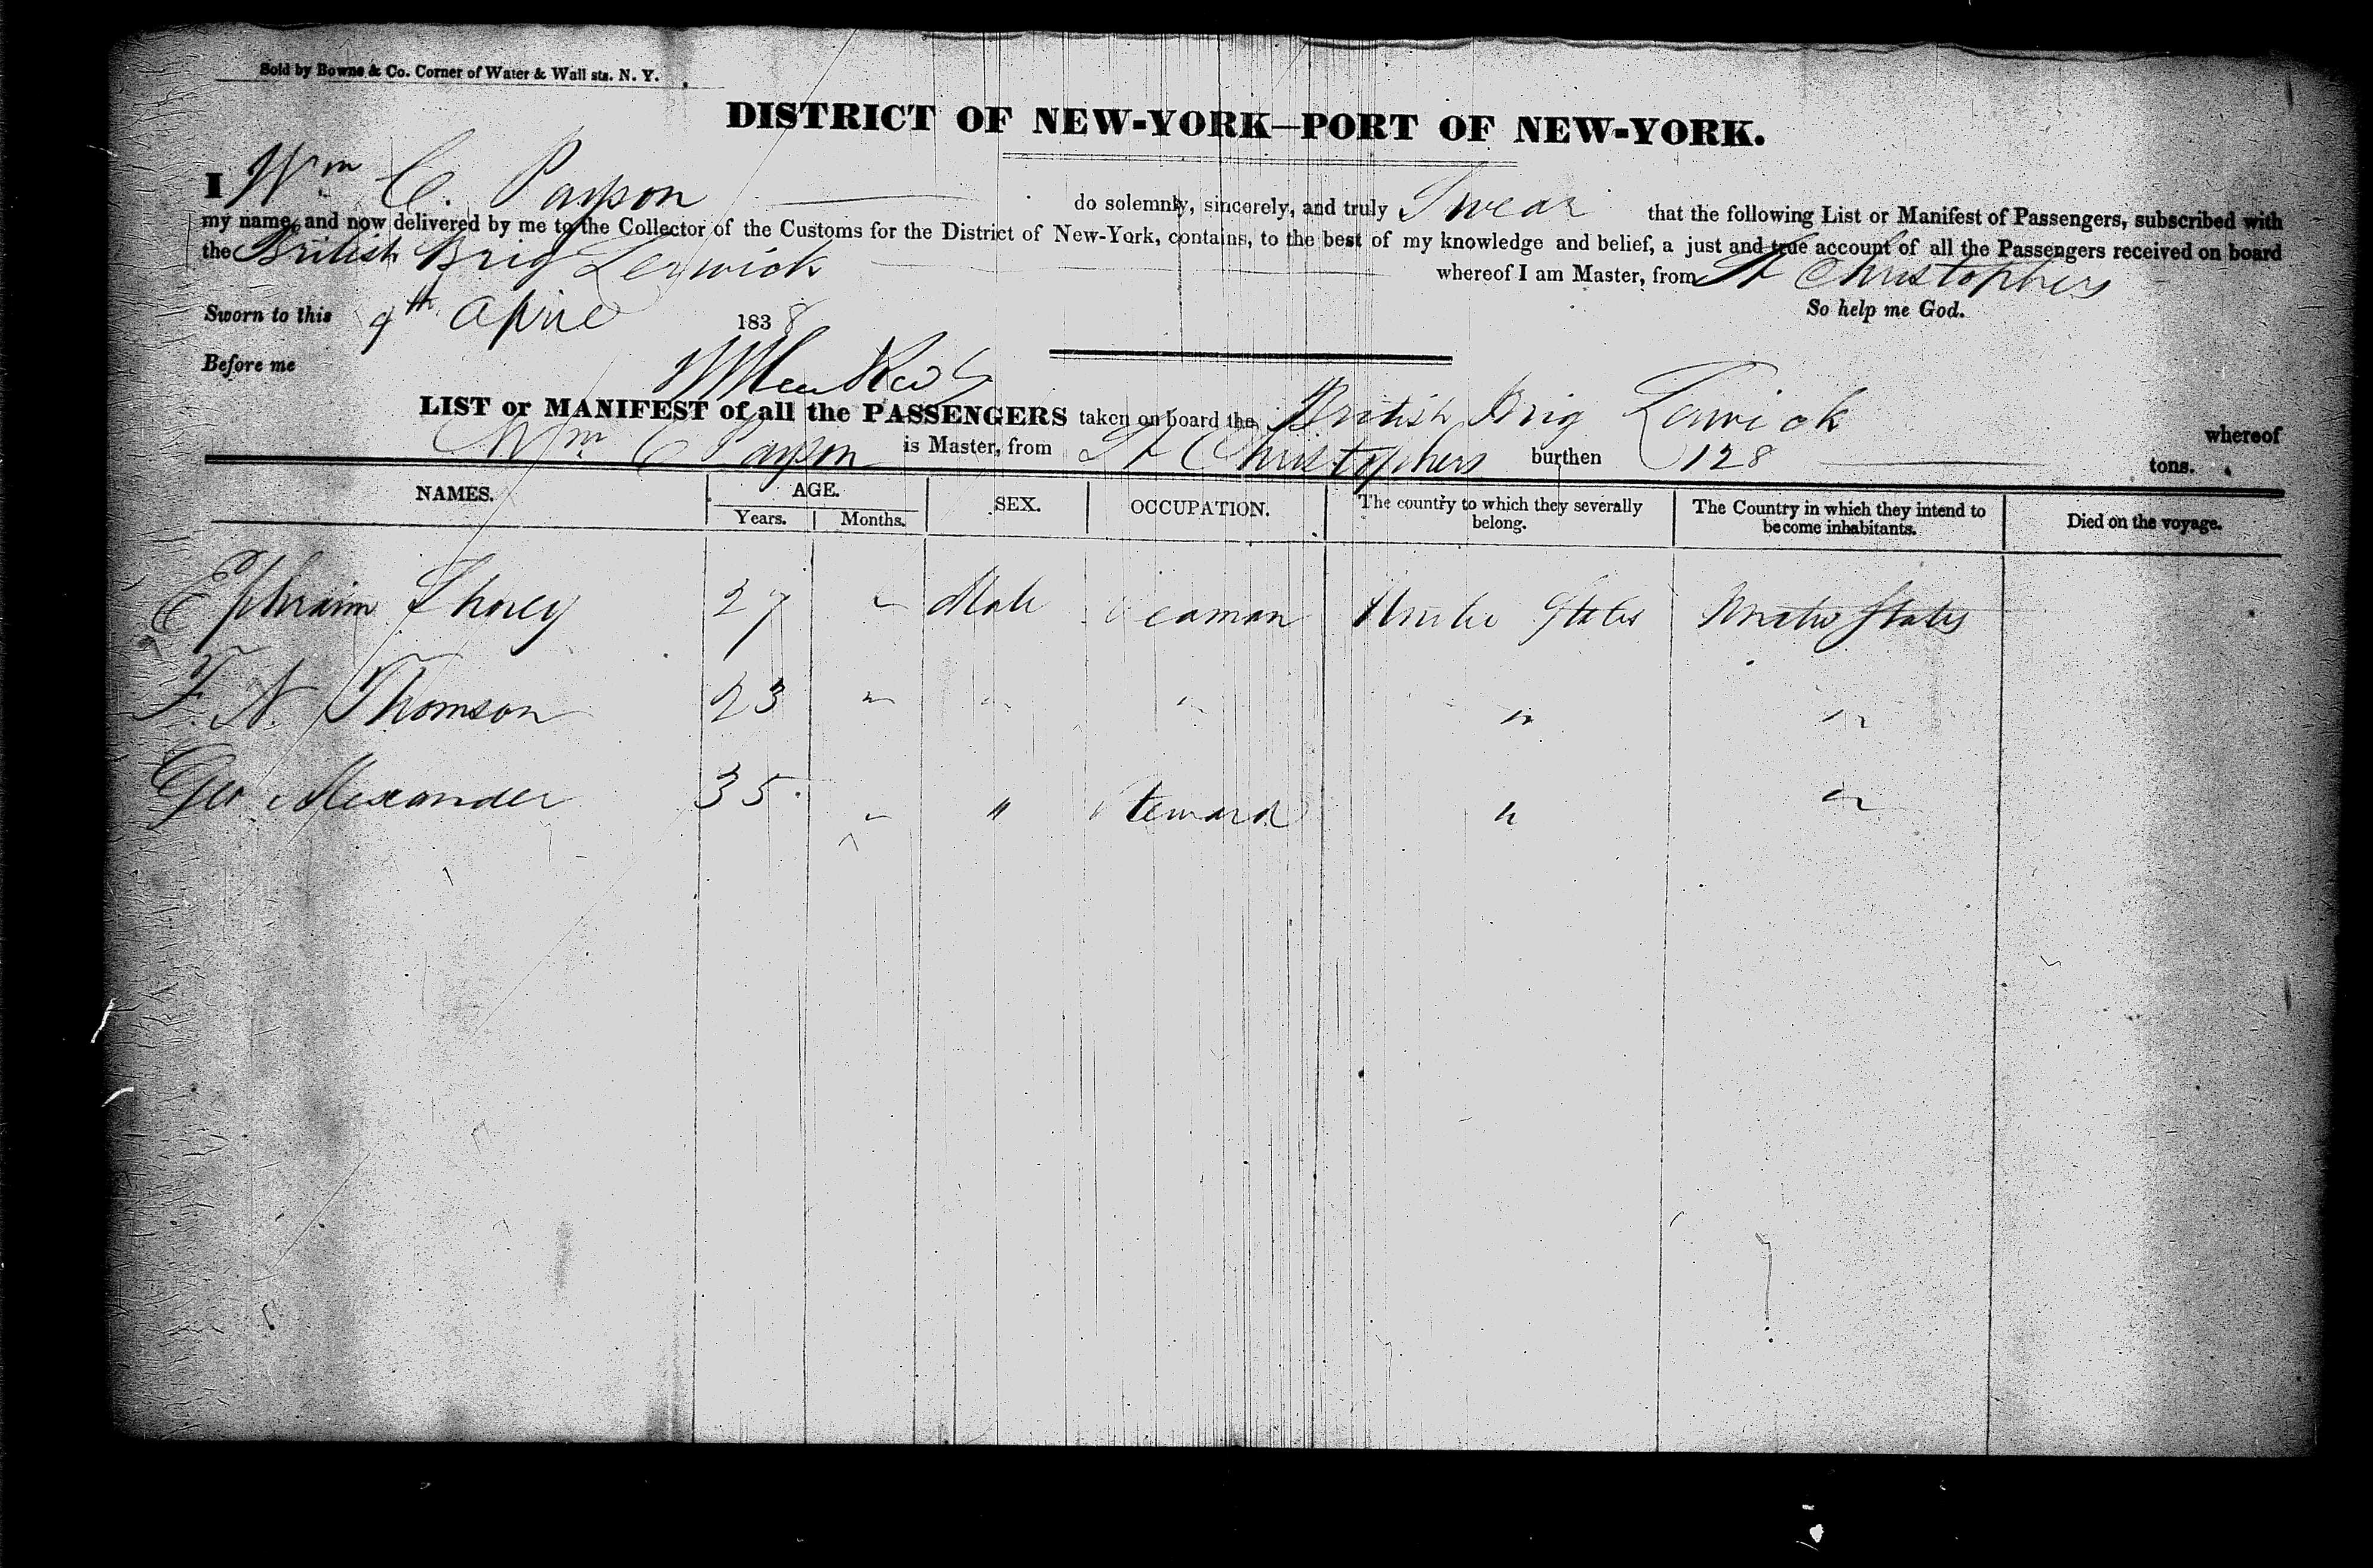 Sold by Bowne & Co. Corner of Water & Wall sts. N. Y.
DISTRICT OF NEW-YORK—PORT OF NEW-YORK.
I Wm C. Payson do solemnly, sincerely, and truly Swear that the following List or Manifest of Passengers, subscribed with
my name, and now delivered by me to the Collector of the Customs for the District of New-York, contains, to the best of my knowledge and belief, a just and true account of all the Passengers received on board
the British Brig Lerwick whereof I am Master, from St Christophers
Sworn to this 9th April 1838 So help me God.
Before me
LIST or MANIFEST of all the PASSENGERS taken on board the British Brig Lerwick whereof
Wm C Payson is Master, from St Christophers burthen 128 tons.
NAMES. AGE. SEX. OCCUPATION. The country to which they severally belong. The Country in which they intend to become inhabitants. Died on the voyage.
Years. Months.
Ephraim 27 " Male Seaman United States United States
F. N. Thomson 23 " " " " "
Geo Alexander 35 " " Steward " "